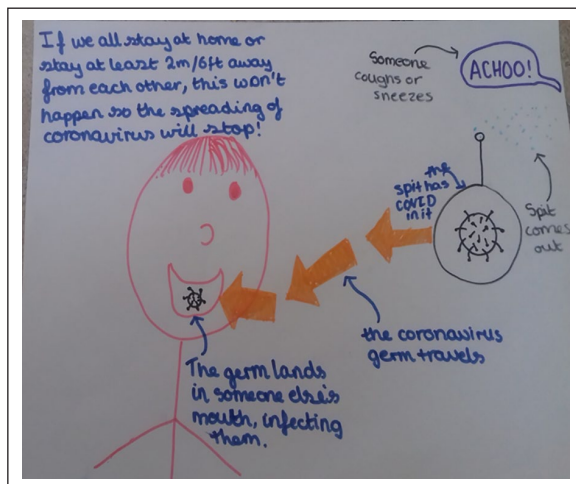 If we all stay at home or
stay at least 2m/6ft away
from each other, this won't
happen so the spreading of
coronavirus will stop!
Someone
coughs or
sneezes
ACHOO!
the
spit has
COVID
in it
Spit
comes
out
the coronavirus
germ travels
The germ lands
in someone else's
mouth, infecting
them.